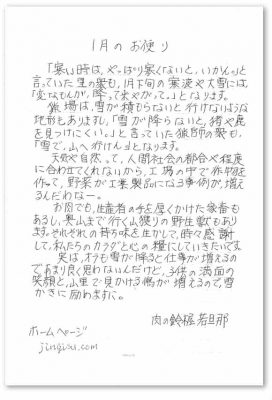 1月のお便り
「寒い時は、やっぱり寒くないと、いかん。」と
言っていた里の衆も、1月下旬の寒波や大雪には、
「変なもんが、降って来やがって。」となります。
猟場は、雪が積もらないと行けないような
地形もありますし、「雪が降らないと、猪や鹿
を見つけにくい。」と言っていた猟師の衆も、
「雪で、山へ行けん。」となります。
天気や自然って、人間社会の都合や程度
に合わせてくれないから、工場の中で作物を
作って、野菜が工業製品になる事例が、増え
るんだわなー。
お肉でも、生産者の手を厚くかけた家畜も
あるし、奥山まで行く山獲りの野生獣もあり
ます。それぞれの持ち味を生かして、時々感謝
して、私たちのカラダと心の糧にしていきたいです。
実は、オラも雪が降ると仕事が増えるの
であまり良く思わないんだけど、子供の満面の
笑顔と、山里で見かける傷が増えるので、雪
かきに励ますに。
肉の鈴木屋 若旦那
ホームページ
jingisu.com